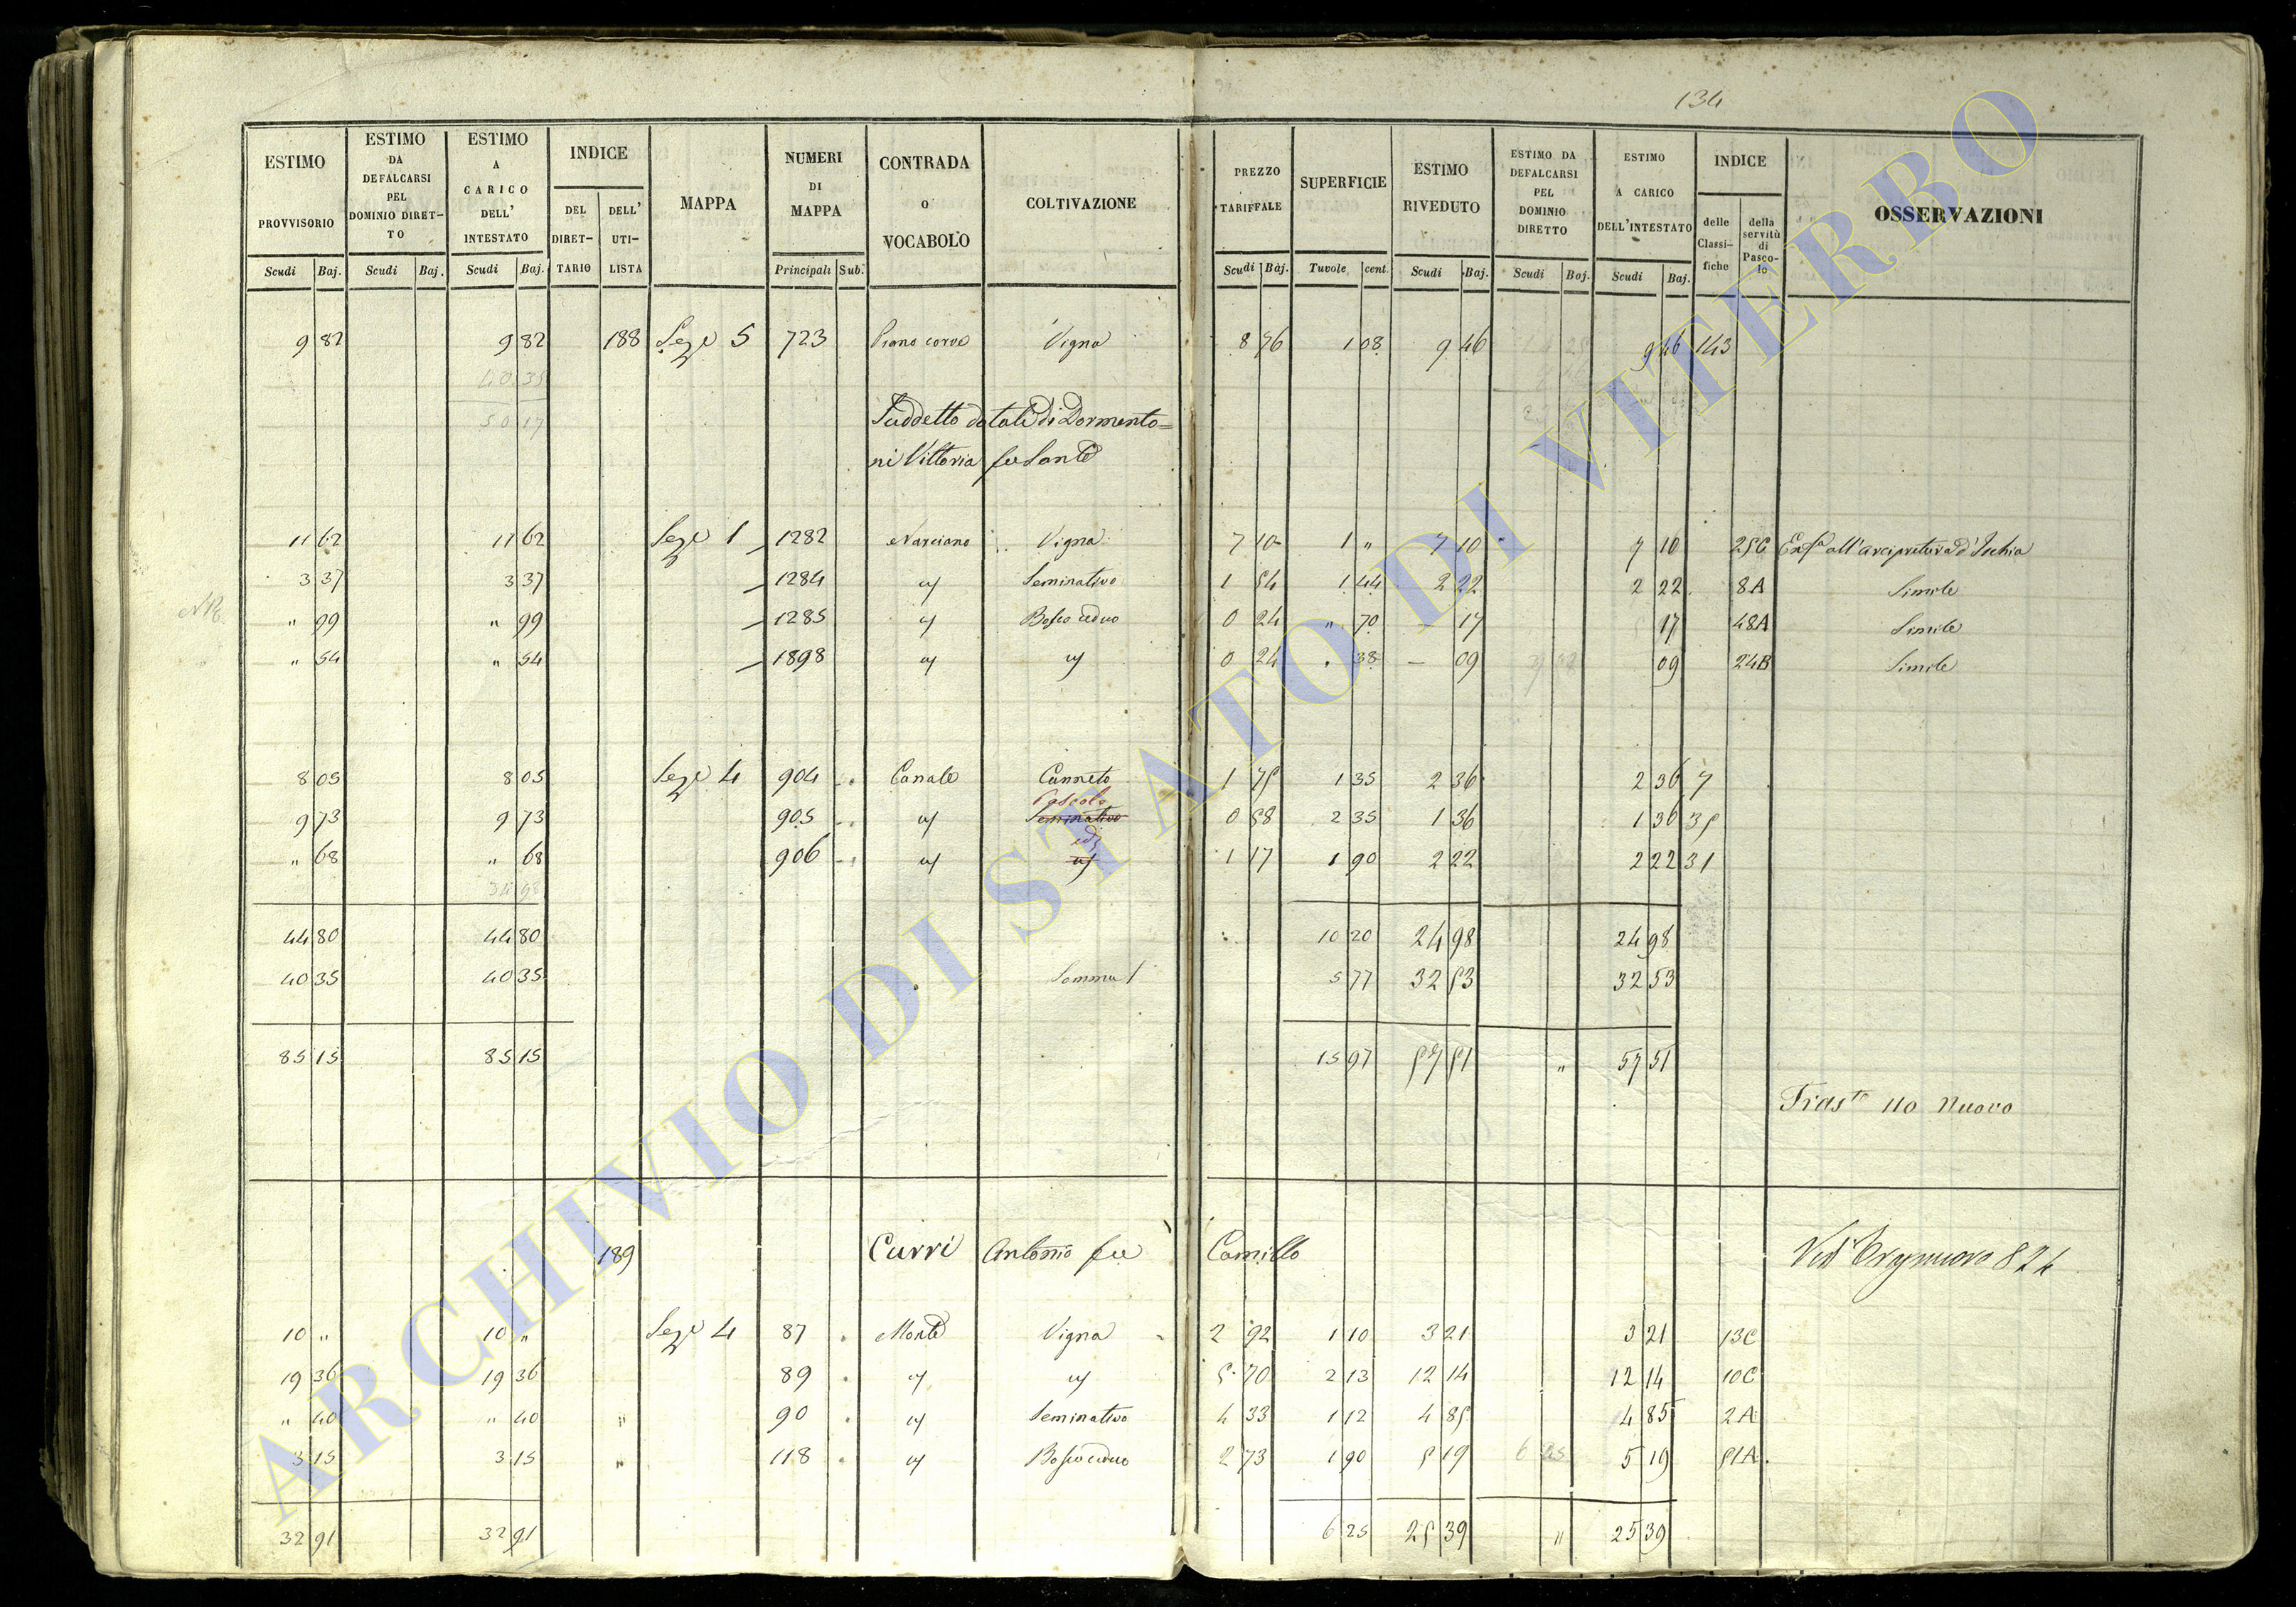 134
ESTIMO PROVVISORIO Scudi Baj. | ESTIMO DA DEFALCARSI PEL DOMINIO DIRETTO Scudi Baj. | ESTIMO A CARICO DELL' INTESTATO Scudi Baj. | INDICE DEL DIRETTARIO DELL' UTILISTA | MAPPA | NUMERI DI MAPPA Principali Sub. | CONTRADA O VOCABOLO | COLTIVAZIONE | PREZZO TARIFFALE Scudi Baj. | SUPERFICIE Tavole cent. | ESTIMO RIVEDUTO Scudi Baj. | ESTIMO DA DEFALCARSI PEL DOMINIO DIRETTO Scudi Baj. | ESTIMO A CARICO DELL'INTESTATO Scudi Baj. | INDICE delle Classifiche della servitù di Pascolo | OSSERVAZIONI
9 82 9 82 188 Sezе 5 723 Piano corvo Vigna 8 76 1 08 9 46 9 46 143
40 35
50 17
Suddetto dotali di Dormento=
ni Vittoria fu Sante
11 62 11 62 Seze 1 1282 Narciano Vigna 7 10 1 " 7 10 7 10 25C Enfa all'arcipretura d'Ischia
3 37 3 37 1284 " Seminativo 1 54 1 44 2 22 2 22 8A Simile
NB
" 99 " 99 1285 " Bosco ceduo 0 24 " 70 – 17 17 48A Simile
" 54 " 54 1898 " " 0 24 . 38 – 09 09 24B Simile
8 05 8 05 Seze 4 904 Canale Canneto 1 75 1 35 2 36 2 36 7
Pascolo
9 73 9 73 905 " Seminativo 0 58 2 35 1 36 1 36 35
id
" 68 " 68 906 " " 1 17 1 90 2 22 2 22 31
34 98
44 80 44 80 10 20 24 98 24 98
40 35 40 35 Somma 5 77 32 53 32 53
85 15 85 15 15 97 57 51 " 57 51
Trasto 110 nuovo
189 Curri Antonio fu Camillo
10 " 10 " Seze 4 87 Monte Vigna 2 92 1 10 3 21 3 21 13C
19 36 19 36 89 " " 5 70 2 13 12 14 12 14 10C
" 40 " 40 " 90 " Seminativo 4 33 1 12 4 85 4 85 2A
3 15 3 15 " 118 " Bosco ceduo 2 73 1 90 5 19 5 19 51A
32 91 32 91 6 25 25 39 " 25 39
ARCHIVIO DI STATO DI VITERBO